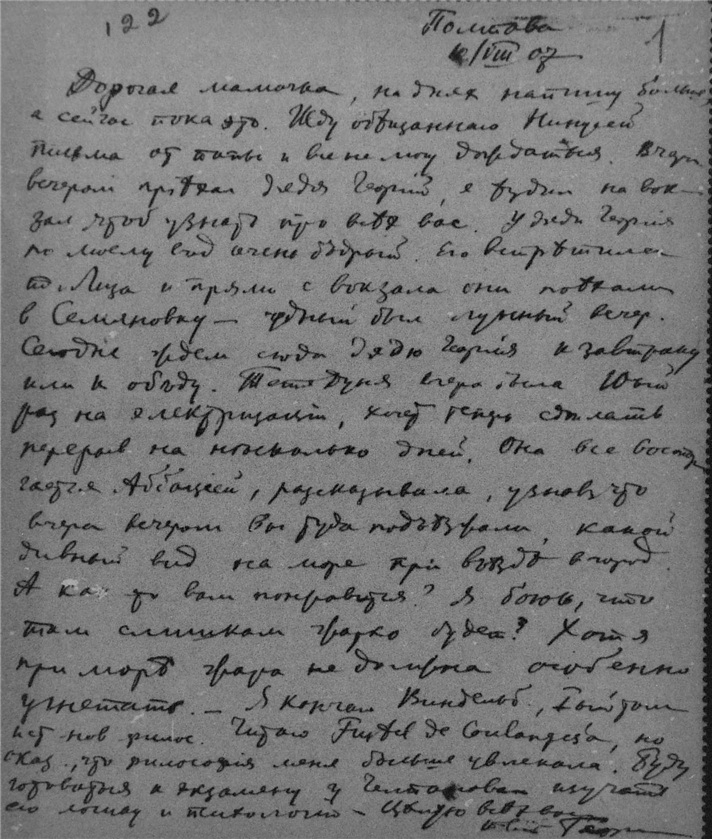 122
Полтава 1
10/VIII 07
Дорогая мамочка, на днях напишу больше,
а сейчас пока это. Жду обѣщаннаго Нинусей
письма от папы и все не могу дождаться. Вчера
вечером приѣхал дядя Георгій, я ѣздил на вок-
зал чтоб узнать про всѣх вас. У дяди Георгія
по моему вид очень бодрый. Его встрѣтила
т. Лиза и прямо с вокзала они поѣхали
в Семяновку — чудный был лунный вечер.
Сегодня ждем сюда дядю Георгія к завтраку
или к обѣду. Тетя Дуня вчера была 10ый
раз на електризаціи, хочет теперь сдѣлать
перерыв на нѣсколько дней. Она все восторгается Аббаціей, разсказывала, узнав что
вчера вечером вы туда подъѣзжали, какой
дивный вид на море при въѣздѣ в город.
А как то вам понравится? Я боюсь, что
там слишком жарко будет? Хотя
при морѣ жара не должна особенно
угнетать. — Я кончаю Виндельб., I-ый том
ист. нов. филос. Читаю Fustel de Coulanges'а, но
оказ., что философія меня больше увлекала. Буду
готовиться к экзамену у Челпанова изучать
его логику и психологію — Цѣлую всѣх вас
Георгій